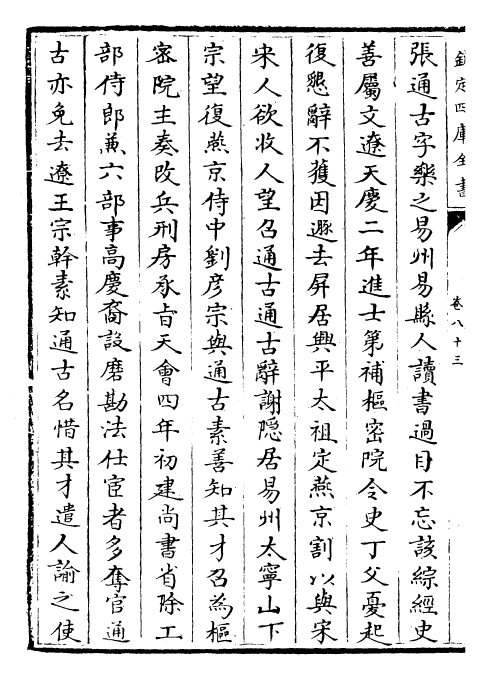 欽定四庫全書
卷八十三
張通古字樂之易州易縣人讀書過目不忘該綜經史
善屬文遼天慶二年進士第補樞密院令史丁父憂起
復懇辭不獲因遯去屏居興平太祖定燕京割以與宋
宋人欲收人望召通古通古辭謝隱居易州太寧山下
宗望復燕京侍中劉彦宗與通古素善知其才召為樞
密院主奏改兵刑房承㫖天會四年初建尚書省除工
部侍郎兼六部事高慶裔設磨勘法仕宦者多奪官通
古亦免去遼王宗幹素知通古名惜其才遣人諭之使